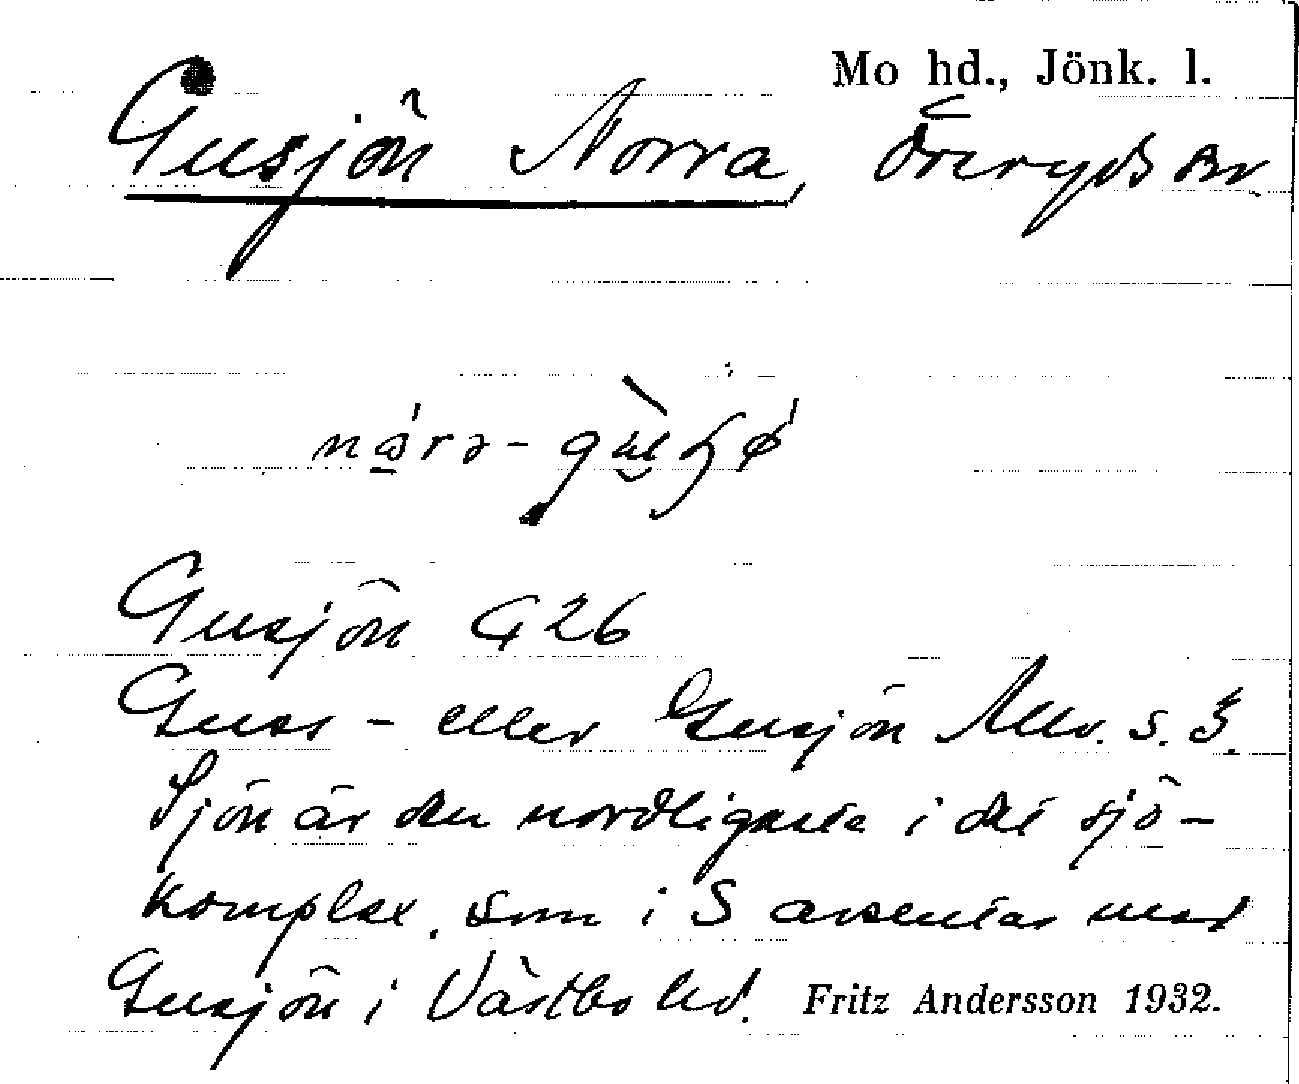 Mo hd., Jönk. l.
Gusjön Norra, Öreryds sn
Gusjön G 26
Guss- eller Gusjön Allv. s. 3.
Sjön är den nordligaste i det sjö-
komplex, som i S avslutas med
Gusjön i Västbo hd. Fritz Andersson 1932.